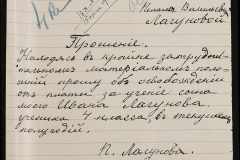 Лагуновой
Прошение.
Находясь в крайне затрудни-
тельном материальном поло-
жении прошу об освобождении
от платы за учение сына
моего Ивана Лагунова,
ученика 4 класса, в текущем
полугодии.
П. Лагунова.